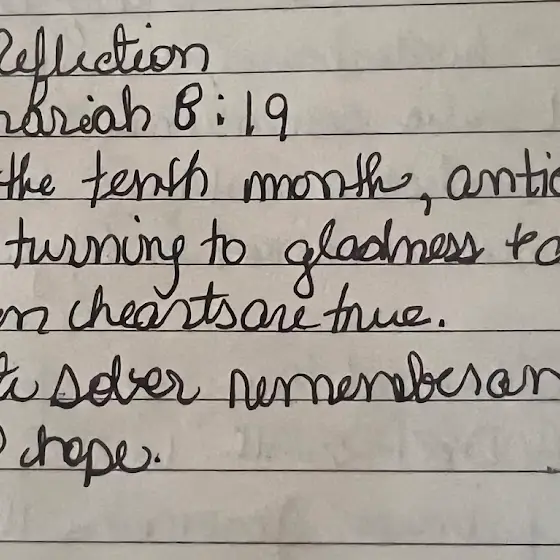 Reflection
hariah 8:19
the tenth month, antic
turning to gladness to
en hearts are true.
sober remembran
hope.